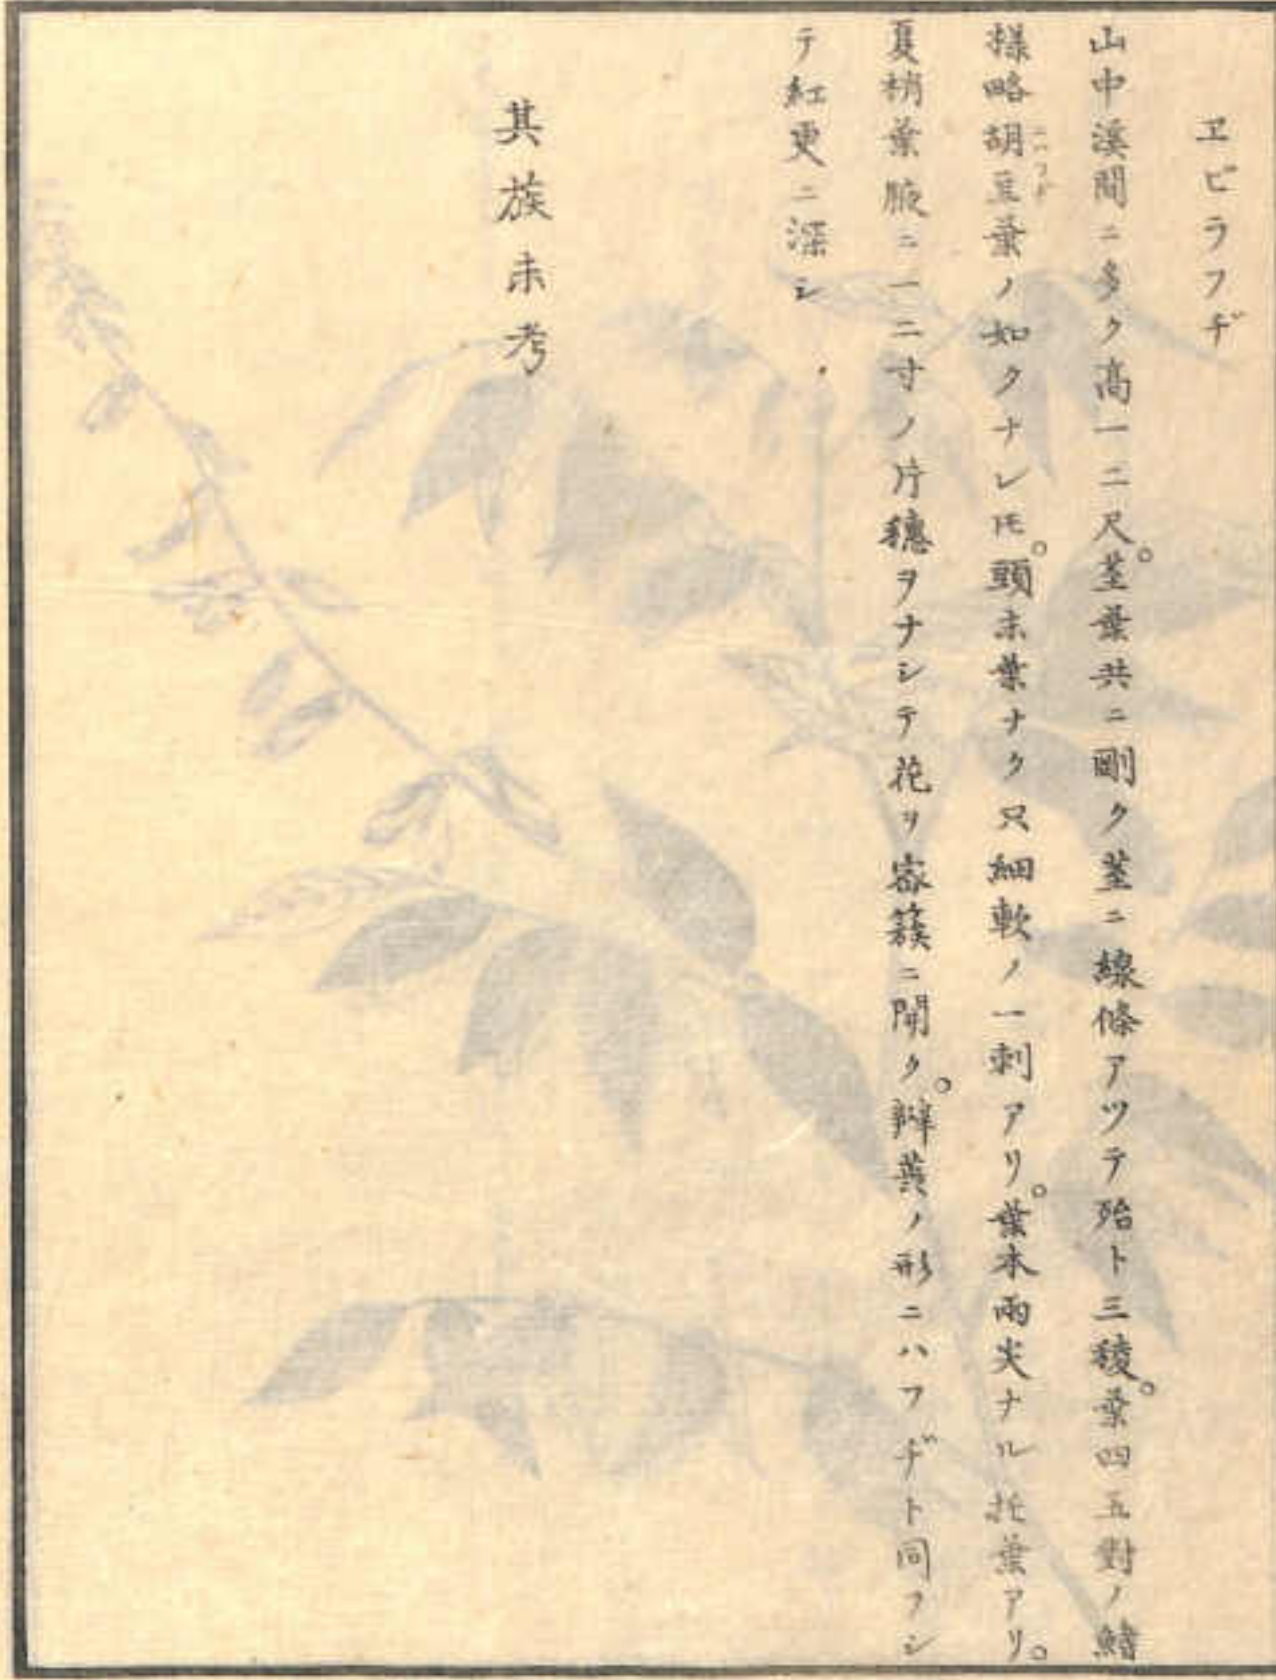 ヱビラフヂ
山中溪間ニ多ク高一二尺。茎葉共ニ剛ク茎ニ線條アツテ殆ト三稜。葉四五對ノ鰭
様略胡豆葉ノ如クナレ𪜈。頭末葉ナク只細軟ノ一刺アリ。葉本両尖ナル托葉アリ。
ニハフヂ
夏梢葉腋ニ一二寸ノ片穗ヲナシテ花ヲ密簇ニ開ク。辧萼ノ形ニハフヂト同フシ
テ紅更ニ深シ
其族未考